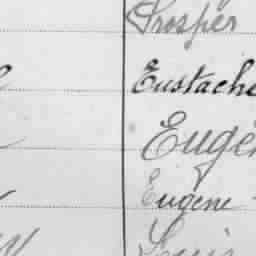 Prosper
Eustache
Eugèn
Eugène
Louis